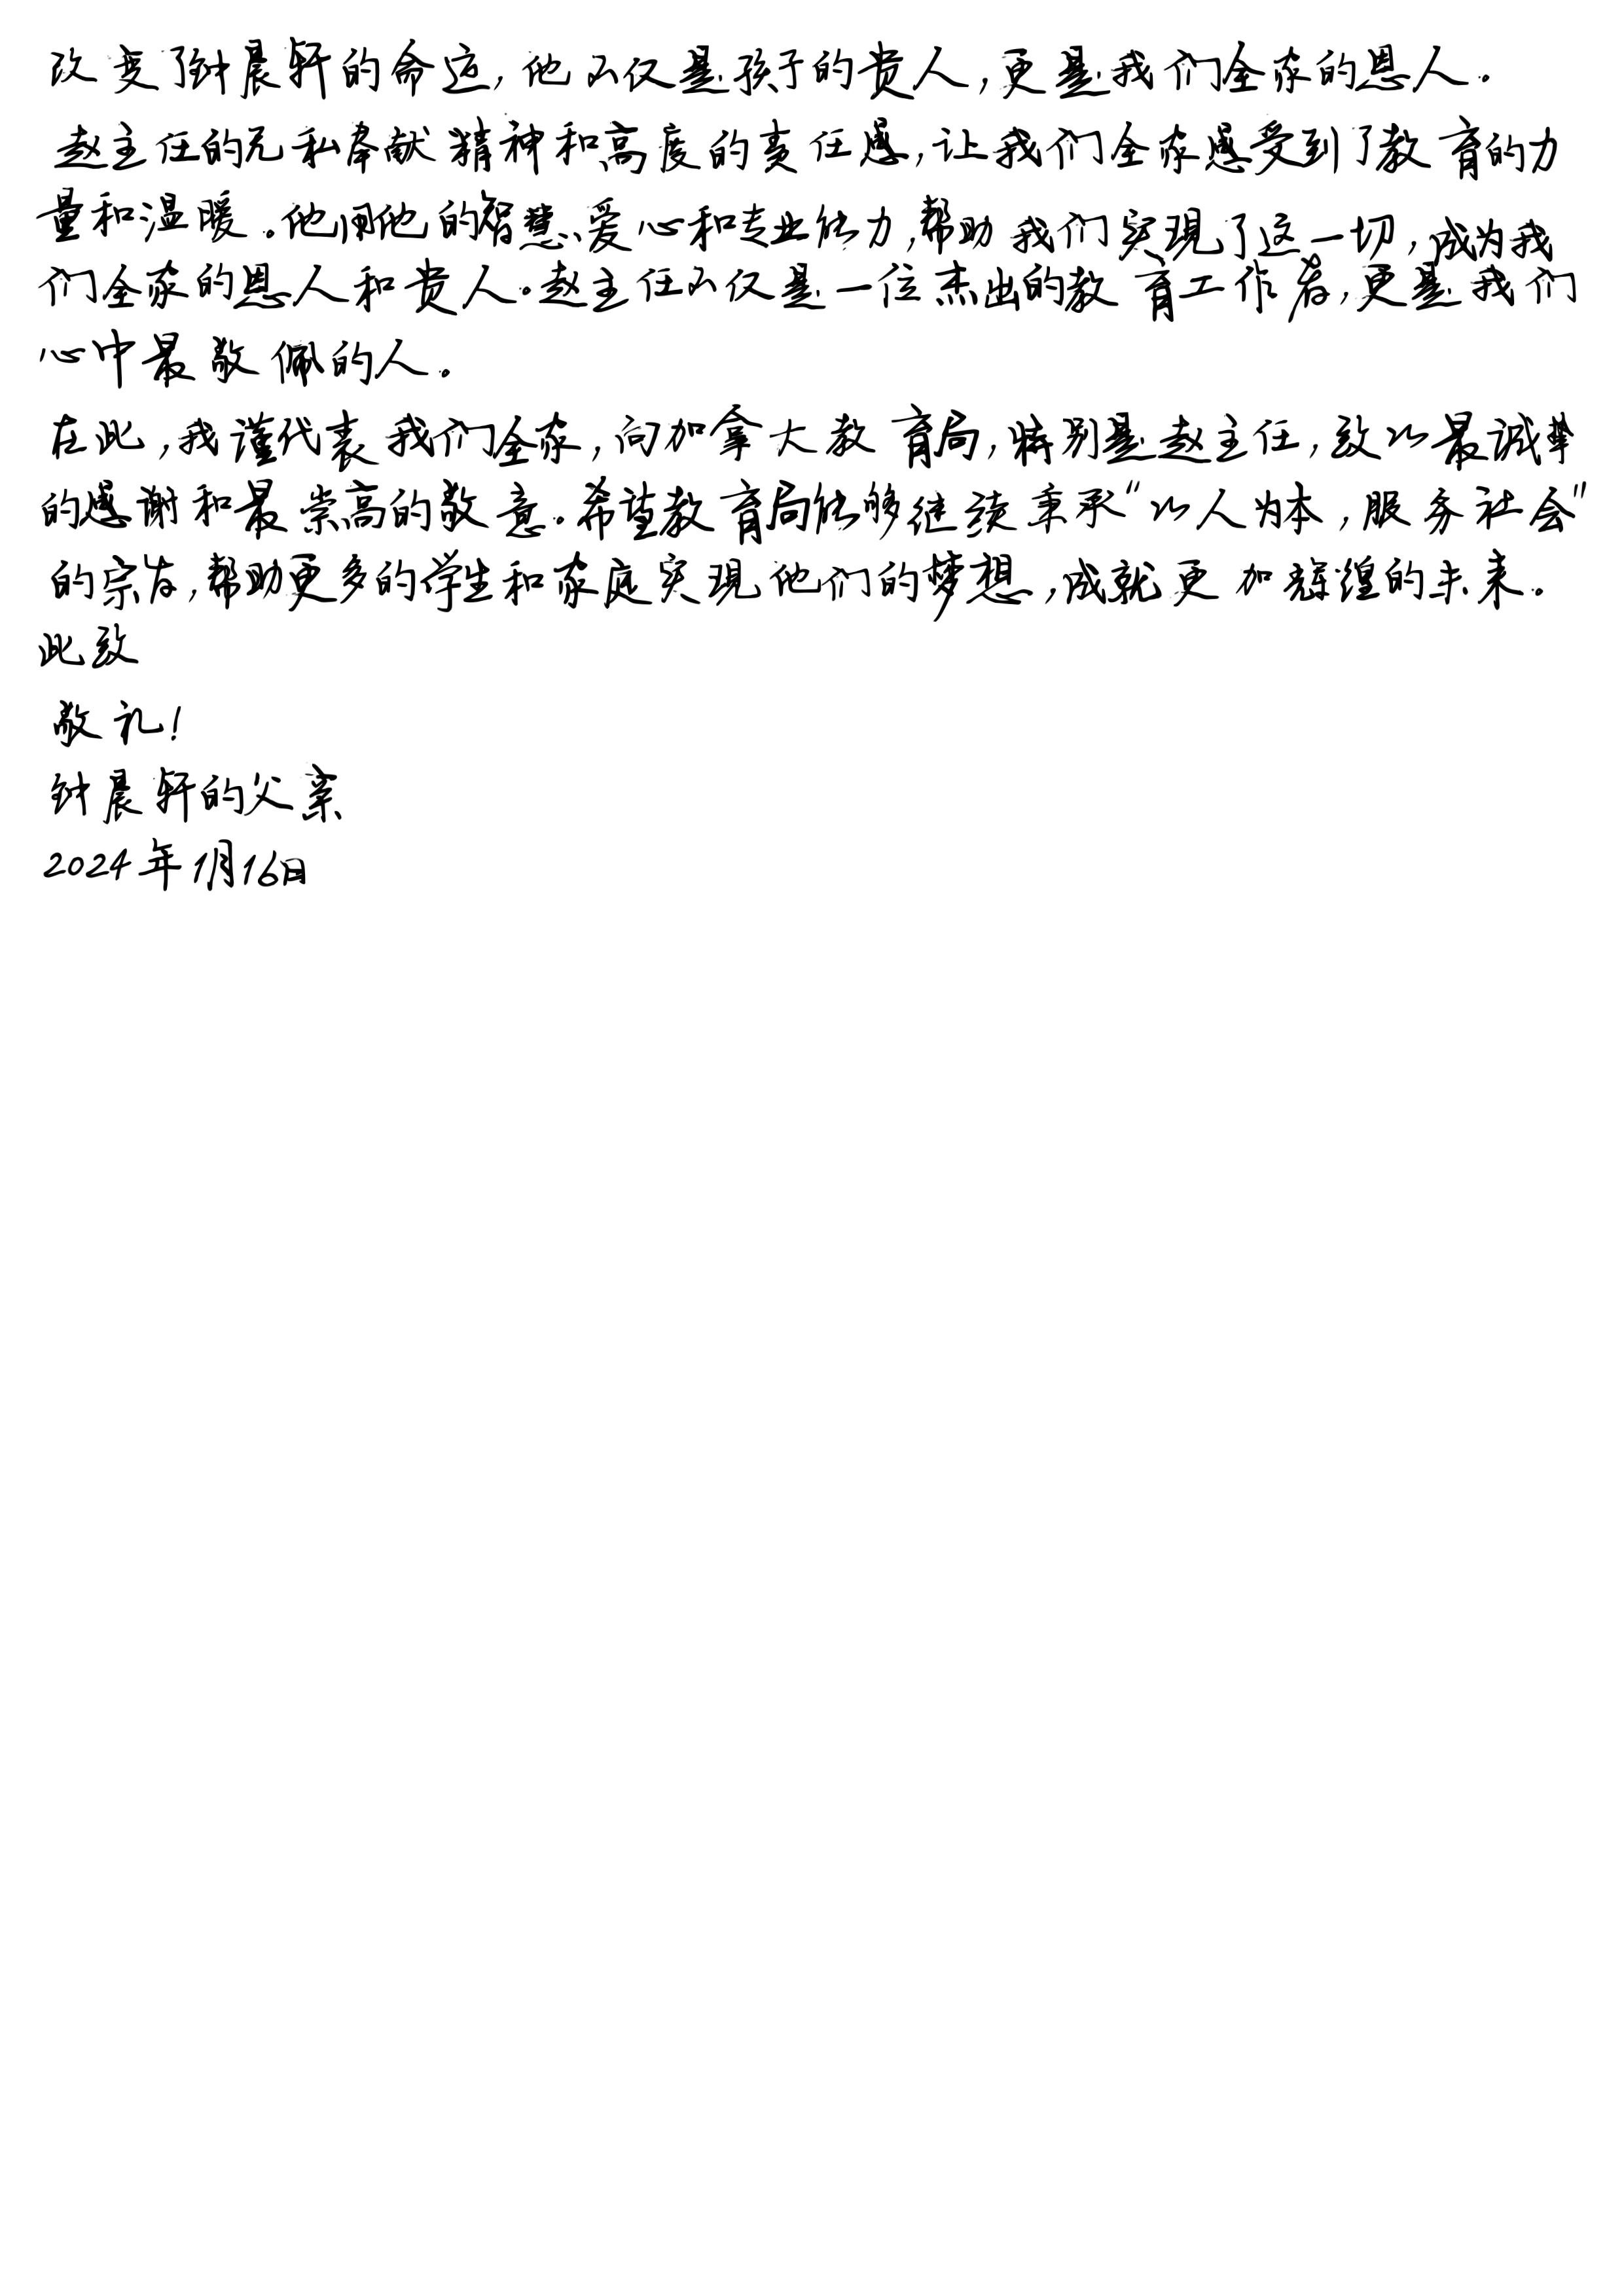 改变了钟晨轩的命运,他不仅是孩子的贵人,更是我们全家的恩人。
赵主任的无私奉献精神和高度的责任感,让我们全家感受到了教育的力
量和温暖。他用他的智慧、爱心和专业能力,帮助我们实现了这一切,成为我
们全家的恩人和贵人。赵主任不仅是一位杰出的教育工作者,更是我们
心中最敬佩的人。
在此,我谨代表我们全家,向加拿大教育局,特别是赵主任,致以最诚挚
的感谢和最崇高的敬意。希望教育局能够继续秉承“以人为本,服务社会”
的宗旨,帮助更多的学生和家庭实现他们的梦想,成就更加辉煌的未来。
此致
敬礼!
钟晨轩的父亲
2024年1月16日